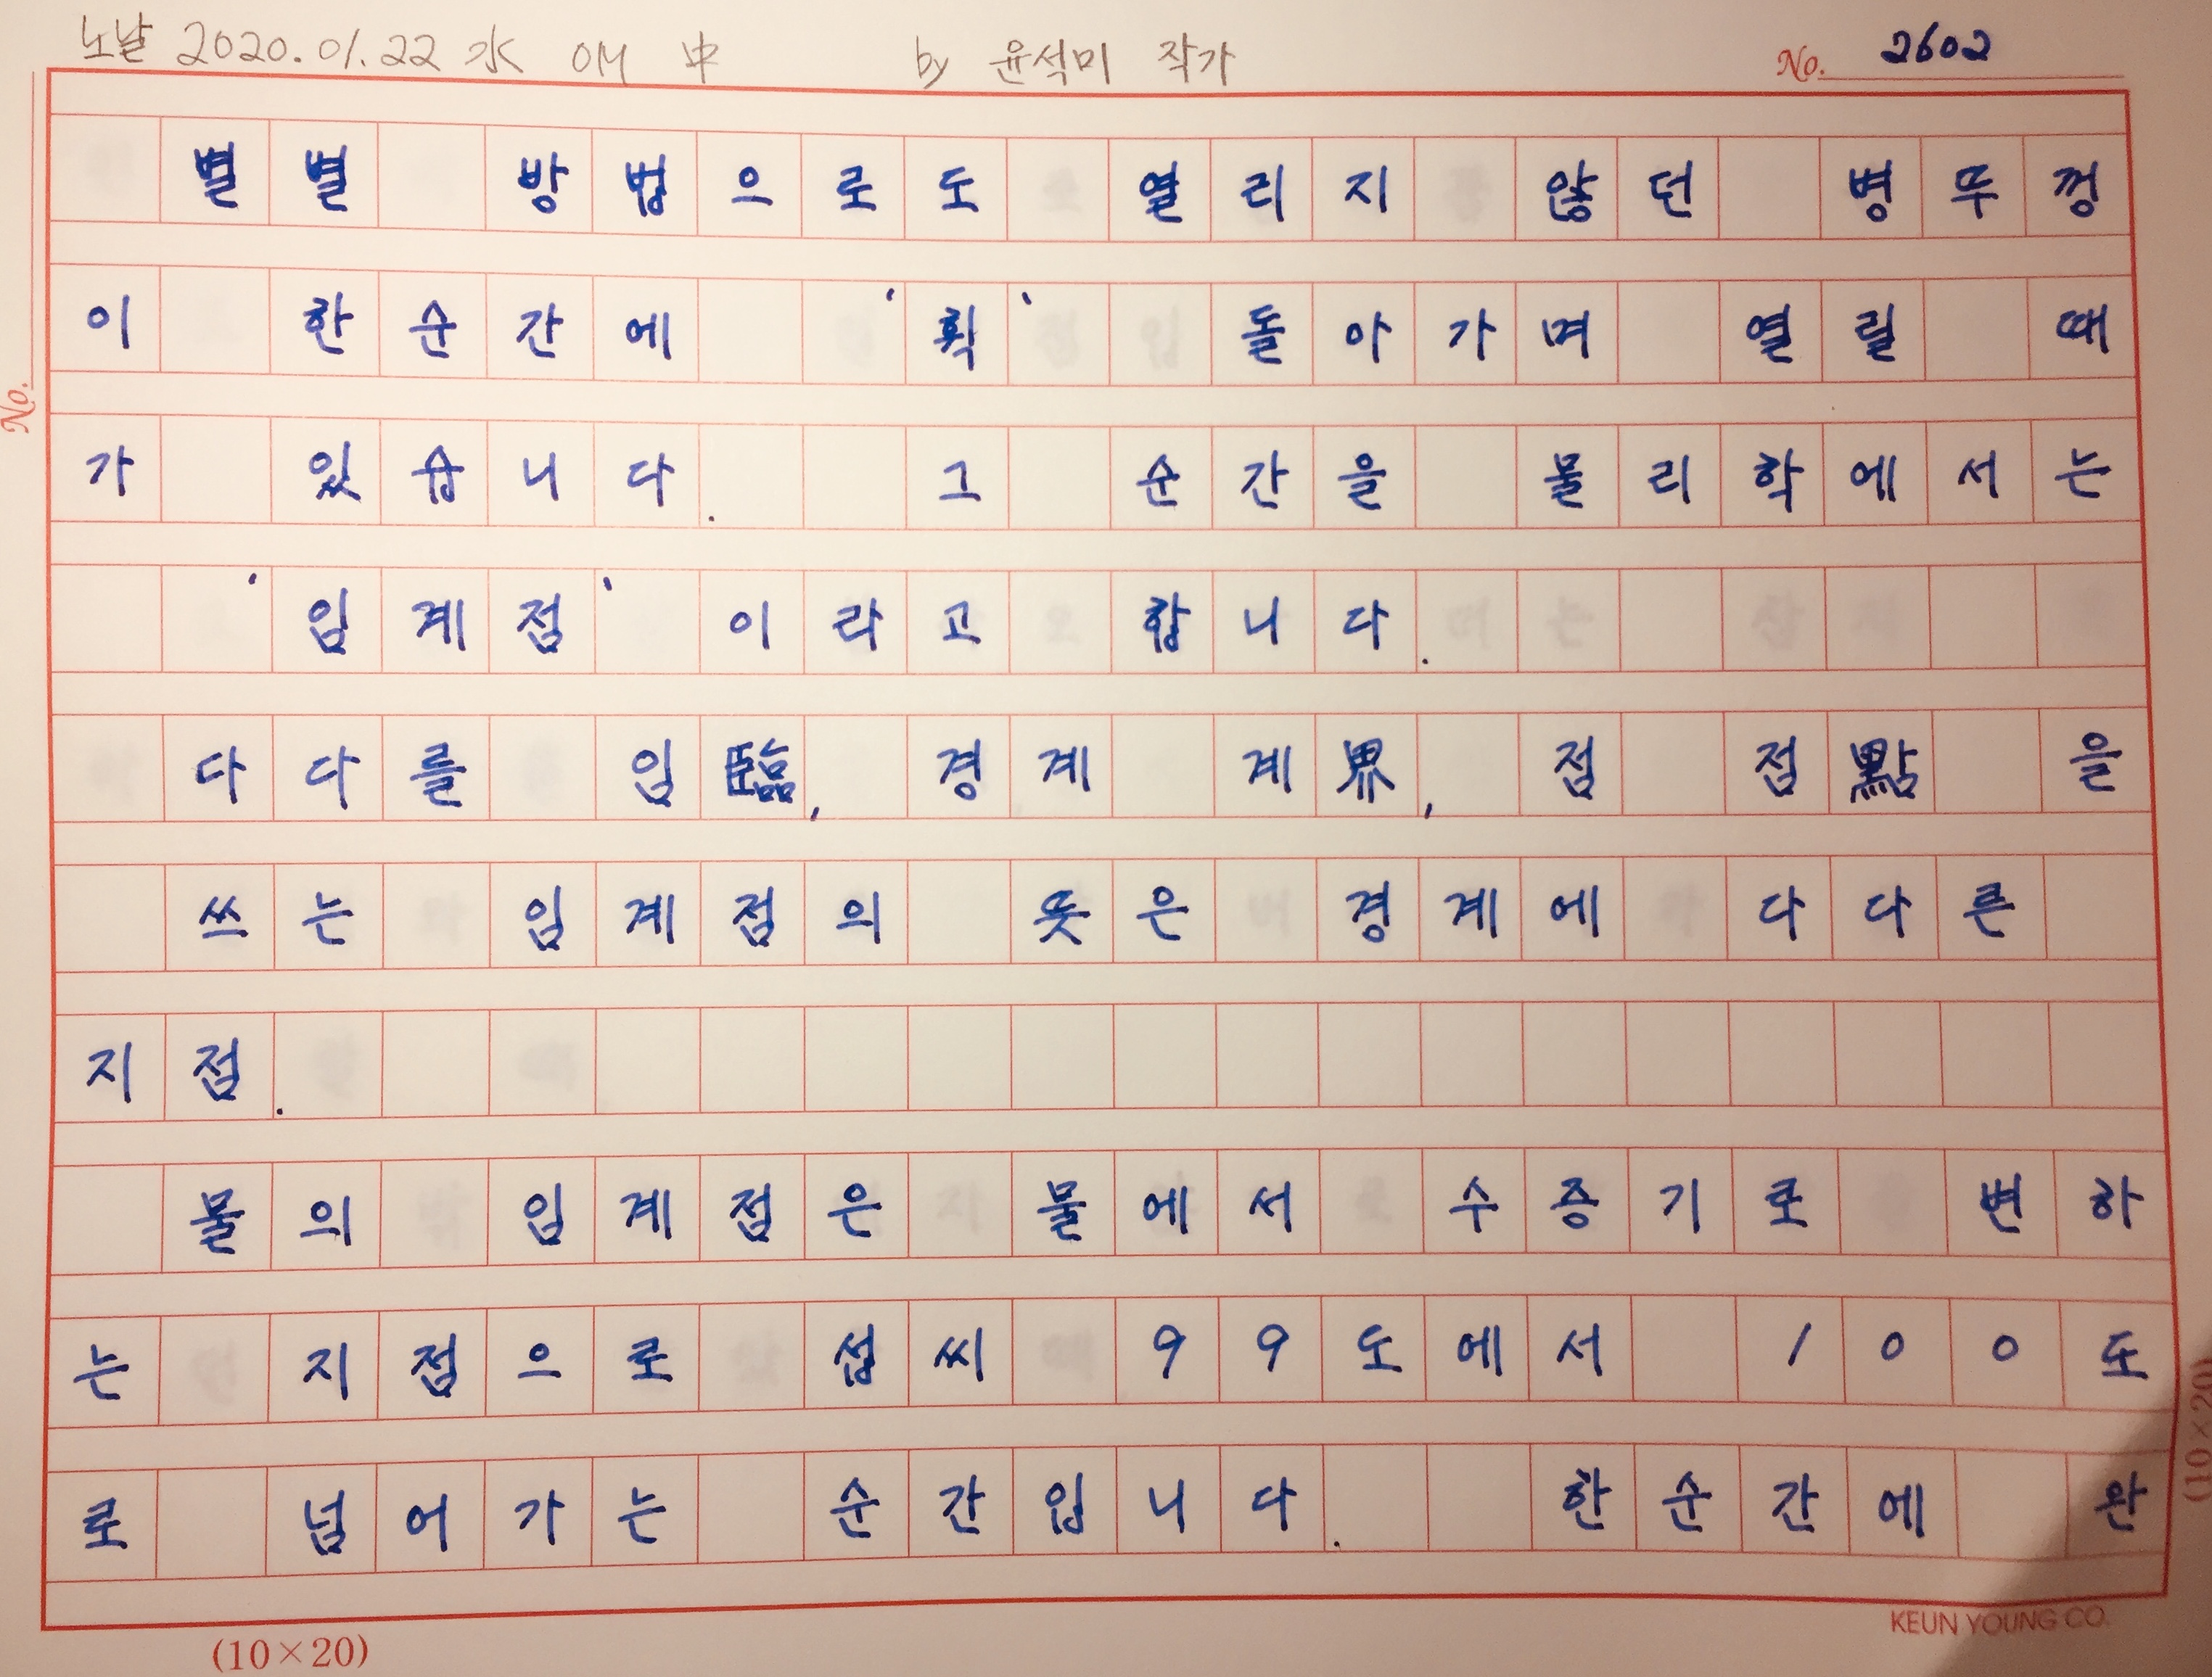 노날 2020.01.22 水 OM 中 by 윤석미 작가 No. 2602
별별 방법으로도 열리지 않던 병뚜껑
이 한순간에 '휙' 돌아가며 열릴 때
가 있습니다. 그 순간을 물리학에서는
'임계점'이라고 합니다.
다다를 임臨, 경계 계界, 점 점點 을
쓰는 임계점의 뜻은 경계에 다다른
지점.
물의 임계점은 물에서 수증기로 변하
는 지점으로 섭씨 99도에서 100도
로 넘어가는 순간입니다. 한순간에 완
No.
(10×20)
KEUN YOUNG CO.
(10×20)